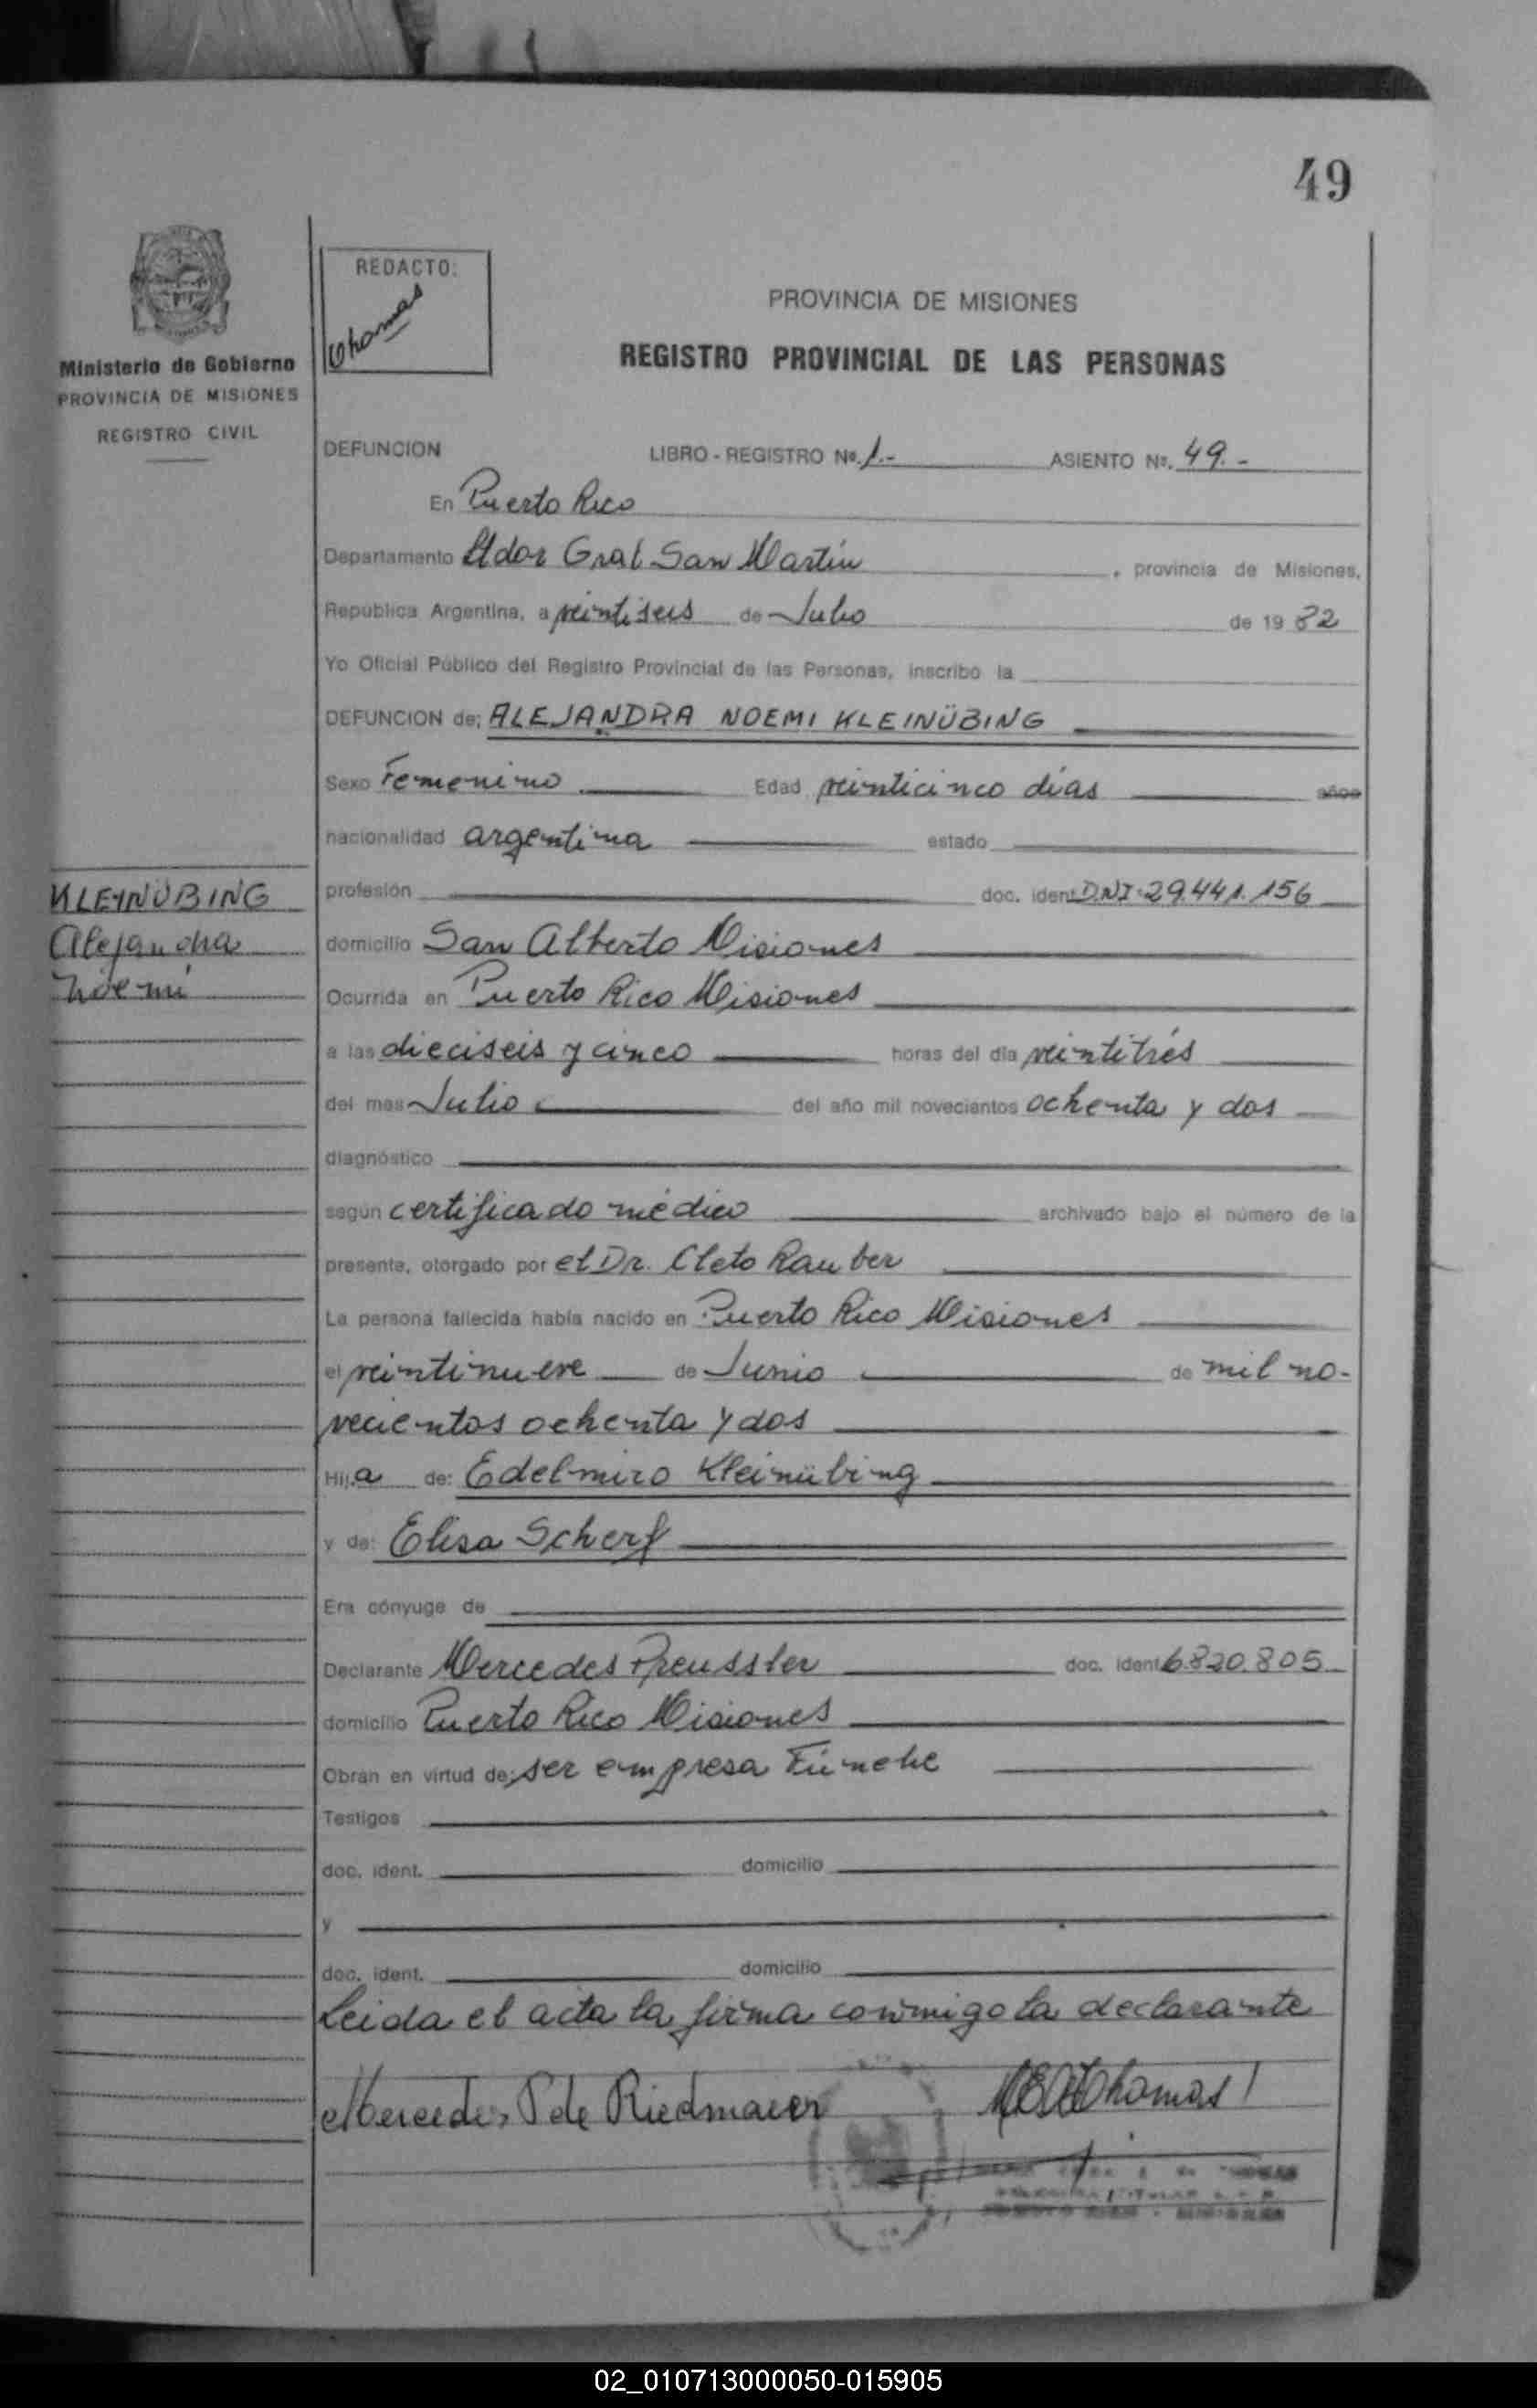 49
REDACTO:
Thomas
PROVINCIA DE MISIONES
REGISTRO PROVINCIAL DE LAS PERSONAS
Ministerio de Gobierno
PROVINCIA DE MISIONES
REGISTRO CIVIL
DEFUNCION LIBRO - REGISTRO Nº. 1.- ASIENTO Nº. 49.-
En Puerto Rico
Departamento Ldor Gral San Martín, provincia de Misiones,
República Argentina, a veintiseis de Julio de 1982
Yo Oficial Público del Registro Provincial de las Personas, inscribo la
DEFUNCION de: ALEJANDRA NOEMI KLEINÜBING
Sexo Femenino Edad veinticinco días años
nacionalidad argentina estado
KLEINÜBING
Alejandra
Noemí
profesión doc. ident. D.N.I. 29.441.156
domicilio San Alberto Misiones
Ocurrida en Puerto Rico Misiones
a las dieciseis y cinco horas del día veintitrés
del mes Julio del año mil novecientos ochenta y dos
diagnóstico
según certificado médico archivado bajo el número de la
presente, otorgado por el Dr. Cleto Rauber
La persona fallecida había nacido en Puerto Rico Misiones
el veintinueve de Junio de mil no-
vecientos ochenta y dos
Hija de: Edelmiro Kleinübing
y de: Elisa Scherf
Era cónyuge de
Declarante Mercedes Preussler doc. ident. 6.820.805
domicilio Puerto Rico Misiones
Obran en virtud de: ser empresa Fúnebe
Testigos
doc. ident. domicilio
y
doc. ident. domicilio
Leida el acta la firma conmigo la declarante
Mercedes P de Riedmaier Thomas
02_010713000050-015905